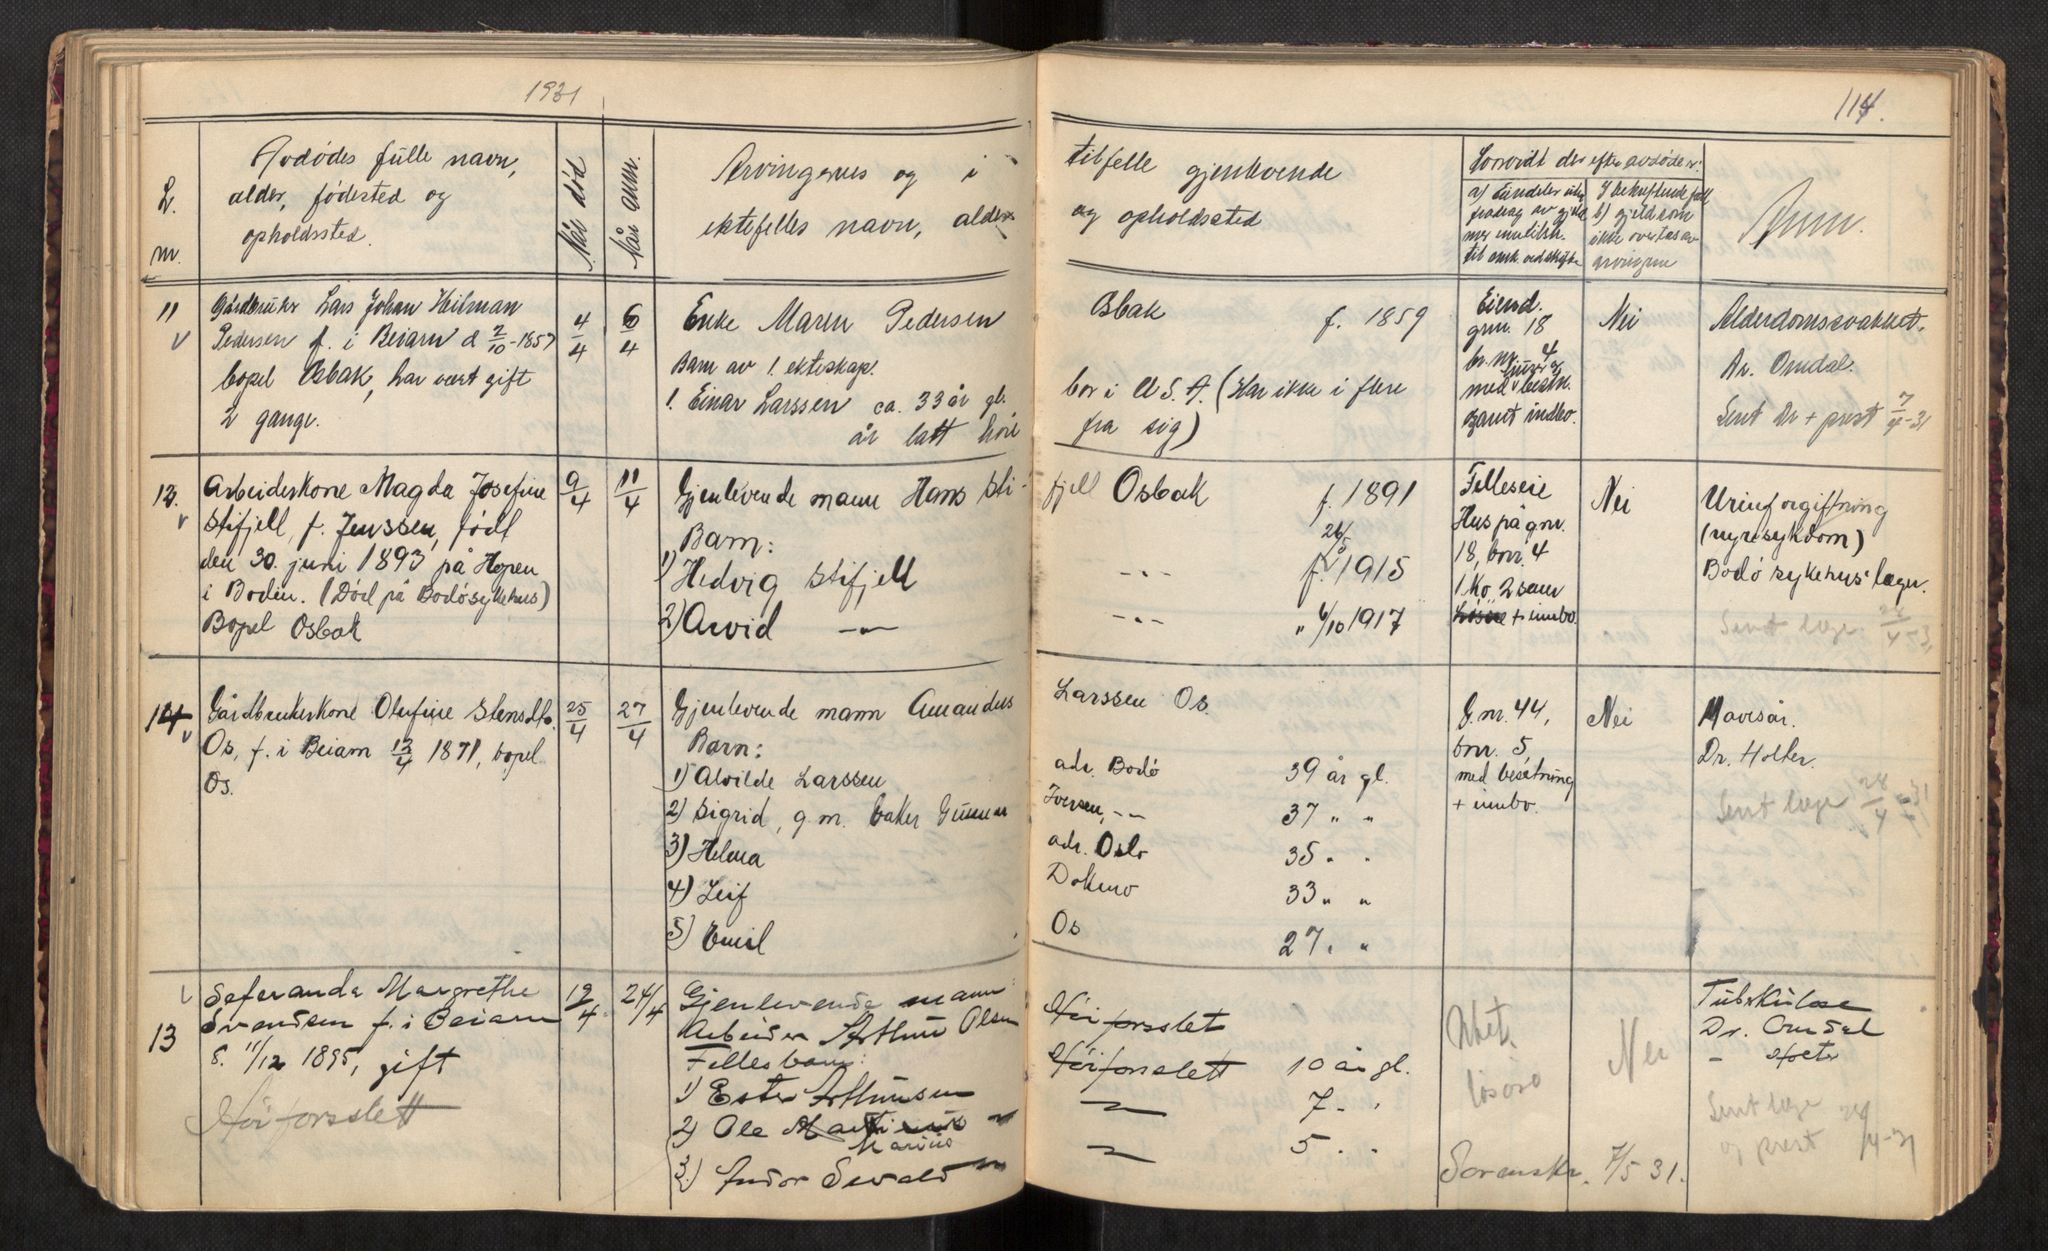 1931
114.
L.
m.
Avdødes fulle navn,
alder, fødested og
opholdssted.
Når død
Når anm.
Arvingernes og i
ektefelles navn, alder
tilfelle gjenlevende
og opholdssted
Hvorvidt der efter avdøde er:
a) Eiendeler uten
fradrag av gjeld
b) gjeld som
ikke overtas av
arvingene
Anm.
11
Gårdbruker Lars Johan Hilman
Pedersen f. i Beiarn d 2/10-1857
bopel Osbak, har vært gift
2 gange.
4/4
6/4
Enke Maren Pedersen
Barn av 1. ekteskap.
1. Einar Larssen ca. 33 år gl.
år latt høre
Osbak f. 1859
bor i U.S.A. (Har ikke i flere
fra sig)
Eiend.
gnr. 18
br. nr. 4
med besetn.
samt indbo.
Nei
Alderdomssvakhet.
Dr. Omdal.
Sent Dr + prest 7/4-31
12.
Arbeiderkone Magda Josefine
Stifjell, f. Jenssen, født
den 30. juni 1893 på Hopen
i Bodin. (Død på Bodø sykehus)
Bopel Osbak
9/4
11/4
Gjenlevende mann Hans Sti-
Barn:
1) Hedvig Stifjell
2) Arvid —"—
fjell Osbak f. 1891
-"- f. 26/5 1915
-"- " 6/10 1917
Felleseie
Hus på gnr.
18, bnr. 4
1 ko, 2 sauer
Løsøre + innbo
Nei
Urinforgiftning
(nyresykdom)
Bodø sykehus' læge.
Sent læge 24/4-31
14
Gårdbrukerkone Olufine Stensdtr.
Os, f. i Beiarn 13/4 1871, bopel
Os.
25/4
27/4
Gjenlevende mann Amandus
Barn:
1) Alvilde Larssen
2) Sigrid, g.m. baker Gunnar
3) Helma
4) Leif
5) Emil
Larssen Os.
adr. Bodø 39 år gl.
Iversen, -"- 37 " "
adr. Oslo 35 " "
Dokmo 33 " "
Os 27 " "
G.nr. 44,
bnr. 5,
med besetning
+ innbo.
Nei
Mavesår.
Dr. Holter.
Sent læge 28/4-31
13
Seferanda Margrethe
Svendsen f. i Beiarn
d. 11/12 1895, gift
Høiforsslett
19/4
24/4
Gjenlevende mann:
Arbeider Arthur Olsen
Fellesbarn:
1) Ester Arthursen
2) Ole Martinus —"—
Marius
3.) Andor Sevald —"—
Høiforsslet
Høiforsslett 10 år gl.
—"— 7 - "
—"— 5 " "
Ubet.
løsøre
Nei
Tuberkulose
Dr. Omdal
" Holter
Sent læge
og prest 24/4-31
Sorenskr. 7/5 31.